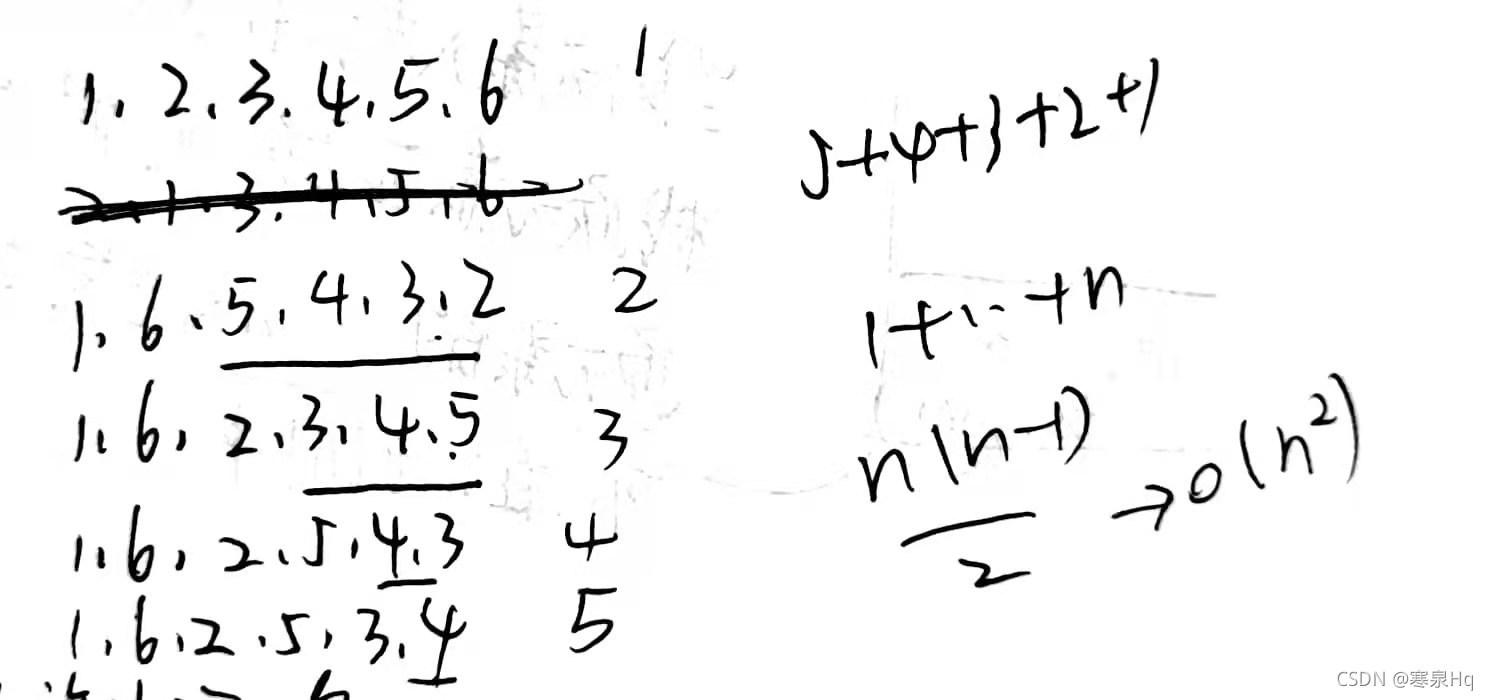 1. 2. 3. 4. 5. 6 1
2. 1. 3. 4. 5. 6
1. 6、5. 4. 3. 2 2
1. 6. 2. 3. 4. 5 3
1. 6. 2. 5. 4. 3 4
1. 6. 2. 5. 3. 4 5
5+4+3+2+1
1+...+n
n(n-1)
2
→ O(n²)
CSDN @寒泉Hq